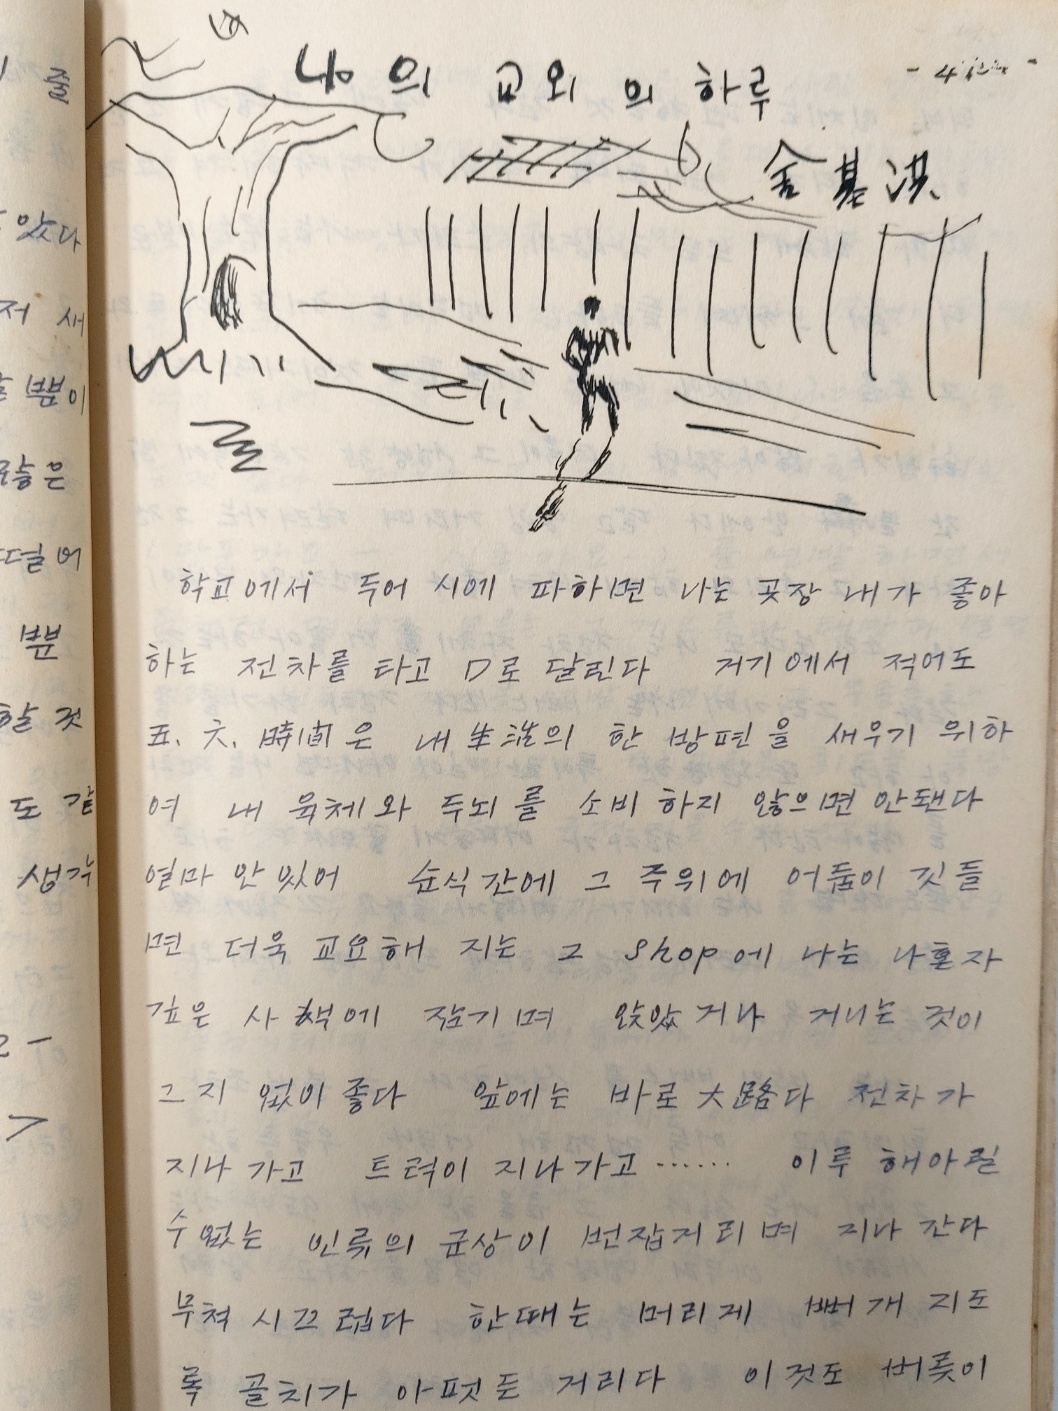 나의 교외의 하루
金基洪
학교에서 두어 시에 파하면 나는 곳장 내가 좋아
하는 전차를 타고 ㅁ로 달린다 거기에서 적어도
五, 六, 時间은 내 生活의 한 방편을 새우기 위하
여 내 육체와 두뇌를 소비하지 않으면 안됀다
얼마 안있어 순식간에 그 주위에 어둠이 깃들
면 더욱 교요해 지는 그 shop에 나는 나혼자
깊은 사책에 잠기며 앉았거나 거니는 것이
그지 없이 좋다 앞에는 바로 大路다 전차가
지나가고 트럭이 지나가고 …… 이루 해아릴
수없는 인류의 군상이 번잡거리며 지나 간다
무척 시끄럽다 한때는 머리게 뻐개 지도
록 골치가 아펏든 거리다 이것도 버릇이
줄
았다
저 새
뿐이
않은
떨어
뿐
할 것
도 같
생각